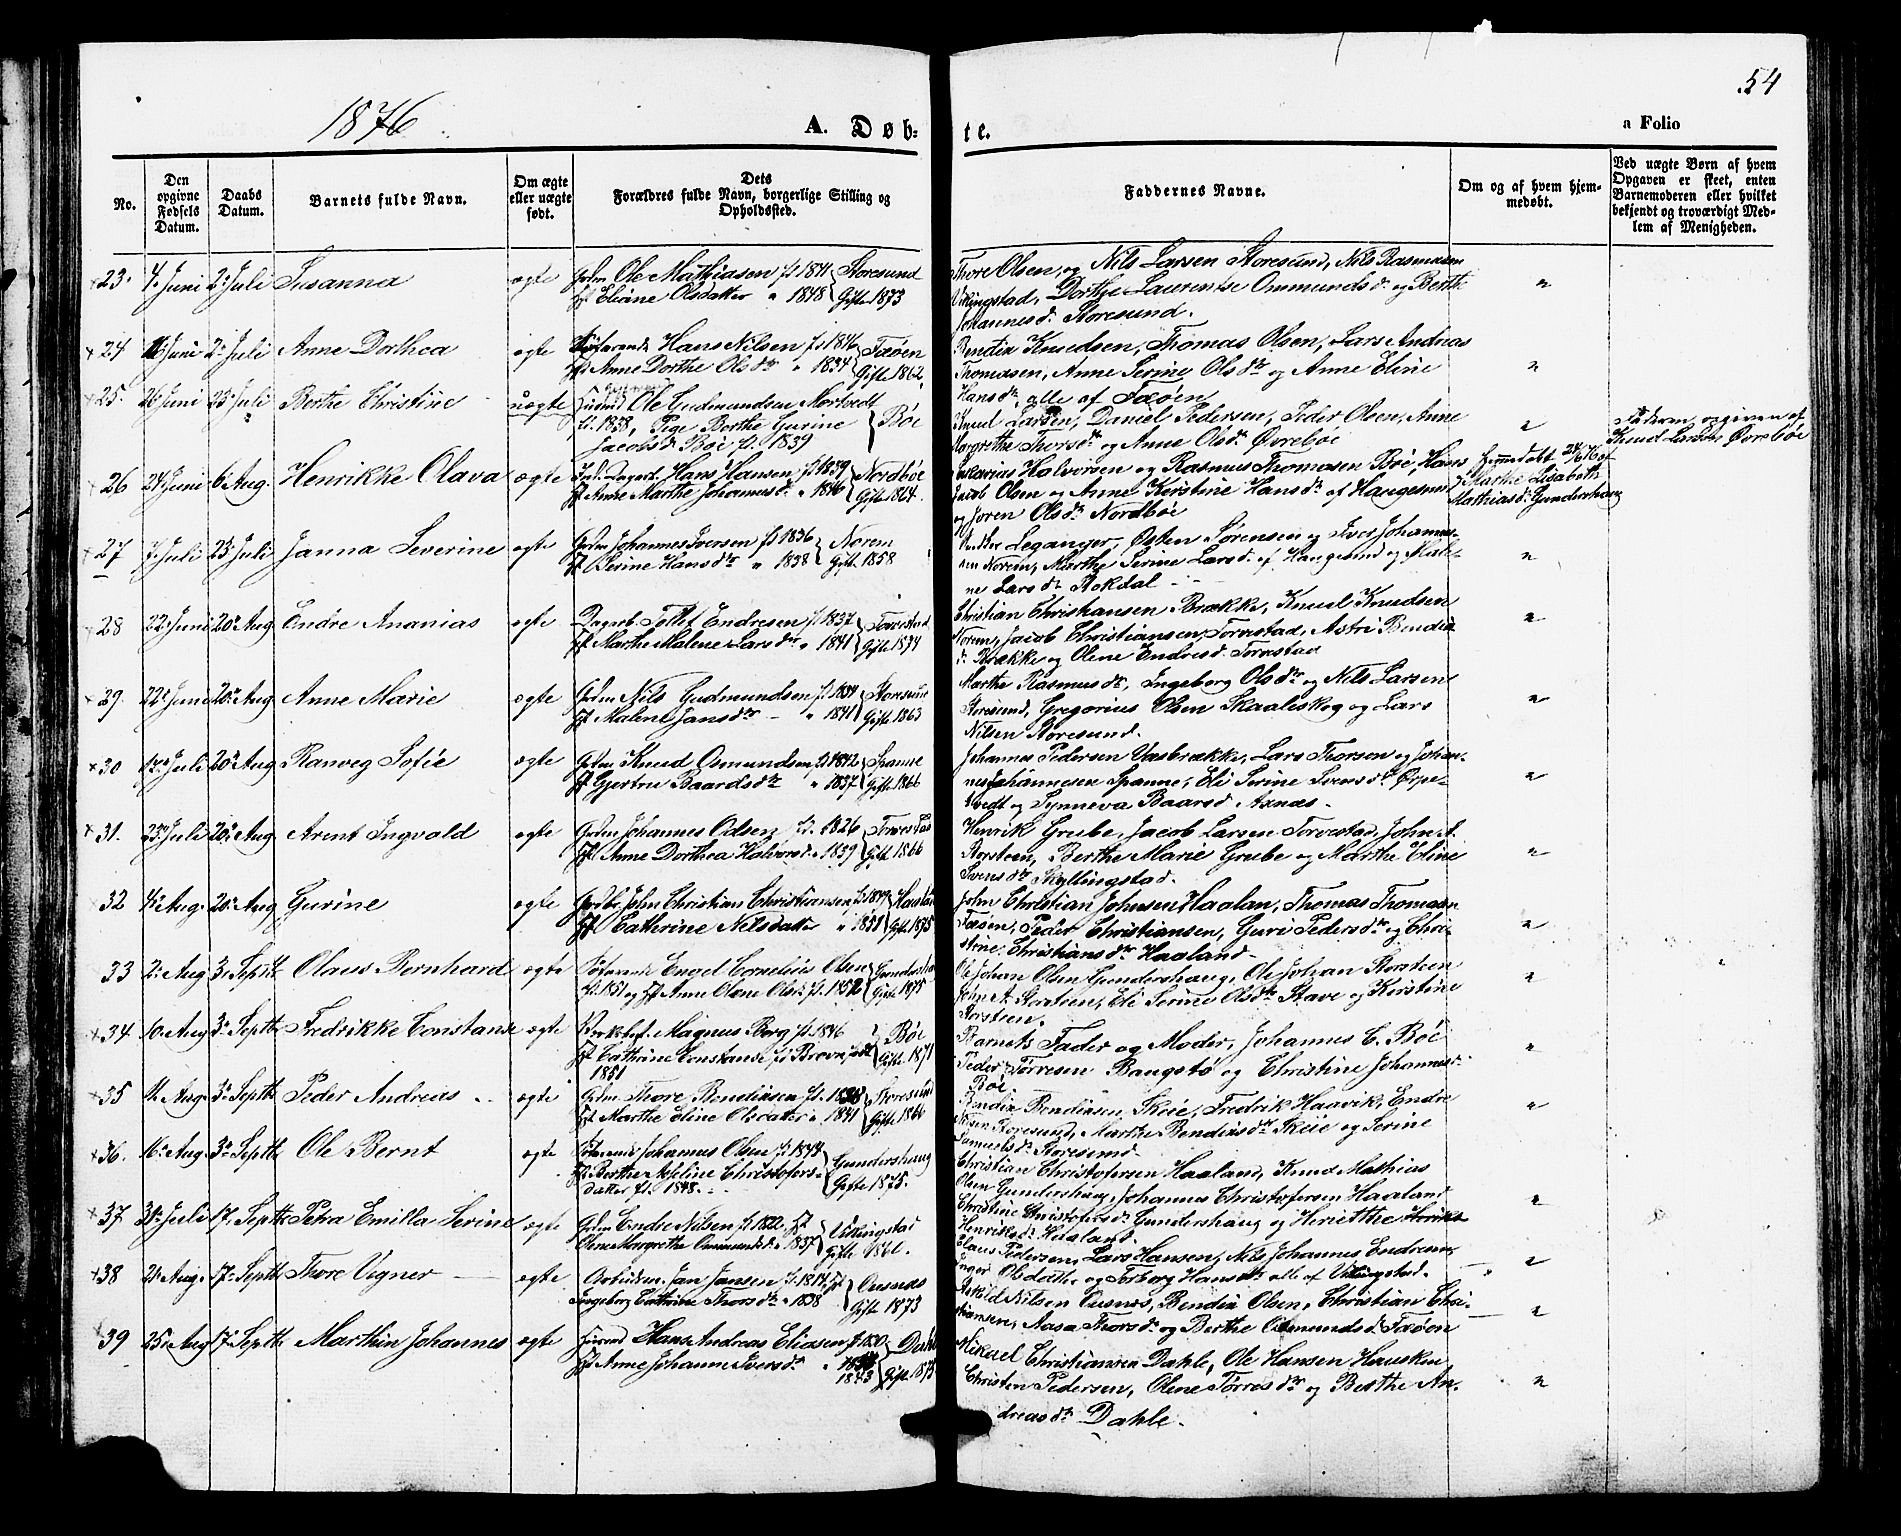 54
1876
A. Døb-
te.
a Folio
No.
Den opgivne Fødsels Datum.
Daabs Datum.
Barnets fulde Navn.
Om ægte eller uægte født.
Dets Forældres fulde Navn, borgerlige Stilling og Opholdssted.
Faddernes Navne.
Om og af hvem hjemmedøbt.
Ved uægte Børn af hvem Opgaven er skeet, enten Barnemoderen eller hvilket bekjendt og troværdigt Medlem af Menigheden.
23. 4. Juni 2. Juli Susanna ægte Ole Mathiasen f. 1841 Storesund
Eliane Olsdatter " 1848 Gift 1873
Thore Olsen, og Nils Larsen Storesund, Nils Rasmusen
Vikingstad, Dorthe Laurentse Ommundsdr og Berthe
Johannesdr Storesund. "
24 Juni 2. Juli Anne Dorthea ægte Hans Nilsen f. 1846 Fæøen
Anne Dorthe Olsdtr " 1834 Gift 1862
Bendix Knudsen, Thomas Olsen, Lars Andreas
Thomasen, Anne Serine Olsdtr og Anne Eline
Hansdtr alle af Fæøen. "
25. 26 Juni 23 Juli Berthe Christine uægte Ole Gudmundsen Mortvedt
f. 1838, Pige Berthe Gurine Bøe
Jacobsdr Bøe f. 1839
Knud Larsen, Daniel Pedersen, Peder Olsen, Anne
Margrethe Thorsdtr og Anne Olsdr Øvrebøe "
Faderen opgiven af
Knud Larsen Øvrebøe
26 24 Juni 6. Aug. Henrikke Olava ægte Hans Hansen f. 1839 Nordbøe
Anne Marthe Johannesdr " 1840 Gift 1864.
Zacarias Halvorsen og Rasmus Thomasen Bøe, Hans
Jacob Olsen og Anne Kirstine Hansdtr af Haugesund
og Joren Olsdtr Nordbøe
Hjemmedøbt 24/6 76 af
Marthe Lisabeth
Mathiasdr Gundershaug
27 7. Juli 23. Juli Janna Severine ægte Johannes Iversen f. 1836 Norem
Berine Hansdtr " 1838 Gift 1858
Leganger, Østen Sørensen og Iver Johanne-
sen Norem, Marthe Serine Larsdr af Haugesund og Male-
ne Larsdtr Stokdal "
28 22. Juni 20. Aug. Endre Ananias ægte Dagarb. Tollef Endresen f. 1837 Torvestad
Marthe Malene Larsdtr " 1841 Gift 1874
Christian Christiansen Brække, Knud Knudsen
Norem, Jacob Christiansen Torvestad, Astri Bendix
dr. Brække og Olene Endresdr Torvestad "
29. 22. Juni 20. Aug. Anne Marie ægte Nils Gudmundsen f. 1834 Storesund
Malene Jansdtr " 1841 Gift 1863
Marthe Rasmusdtr, Ingeborg Olsdtr og Nils Larsen
Storesund, Gregorius Olsen Skaaleskog og Lars
Nilsen Storesund. "
30 12. Juli 20. Aug. Ranveg Sofie ægte Knud Osmundsen f. 1842 Spanne
Gjertru Baardsdtr " 1837 Gift 1866
Johannes Pedersen Vasbrække, Lars Thorsen og Johan-
nes Johannesen Spanne, Eli Serine Svensdtr Ørpe-
tvedt og Synneva Baarsd. Axnæs. "
31. 23. Juli 20. Aug. Arent Ingvald ægte Johannes Odsen f. 1826 Torvestad
Anne Dorthea Halvorsd. " 1839 Gift 1866
Henrik Grube, Jacob Larsen Torvestad, John A.
Storsteen, Berthe Marie Grube og Marthe Eline
Svensdtr Skyllingstad. "
32 4. Aug. 20. Aug Gurine ægte John Christian Christiansen f. 1849 Haaland
Cathrine Nilsdatter " 1851 Gift 1875
John Christian Johnsen Haalan, Thomas Thomasen
Fæøen, Peder Christiansen, Guri Pedersdtr og Chri-
stine Christiansdtr Haaland. "
33 2. Aug 3. Septb. Olaus Bernhard ægte Engel Cornelius Olsen Gundershaug
f. 1851 og Anne Olene Olsdr f. 1852 Gift 1875
Ole Johan Olsen Gundershaug, Ole Johan Storsteen
John A. Storsteen, Eli Serine Olsdtr Stave og Kirstine
Storsteen. "
34 10. Aug 3. Septb. Fredrikke Constanse ægte Magnus Borg f. 1846 Bøe
Cathrine Constanse født Gift 1871
1851
Barnets Fader og Moder, Johannes C. Bøe
Peder Torresen Bangstø og Christine Johannes-
Bøe "
35 Aug. 3. Septb. Peder Andreas ægte Thore Bendixsen f. 1838 Storesund
Marthe Eline Olsdatter " 1841 Gift 1866
Bendix Bendixsen Skeie, Fredrik Haavik, Endre
Storesund, Marthe Bendixsdtr Skeie og Serine
Samuelsd. Storesund "
36. 16. Aug. 3. Septb. Ole Bernt ægte Johannes Olsen f. 1844 Gundershaug
Berthe Christofers-
datter f. 1848. Gift 1875.
Christian Christofersen Haaland, Knud Mathias
Olsen Gundershaug, Johannes Christofersen Haaland
Christine Christofersdr Gundershaug og Heriette
Henriksdr Haaland. "
37. 31. Juli 17. Septb. Petra Emilla Serine ægte Endre Nilsen f. 1822. Vikingstad
Olene Margrethe Ommundsdr " 1837 Gift 1861.
Claus Pedersen, Lars Hansen, Nils Johannes Endresen,
Inger Olsdatter og Torborg Hansdtr alle af Vikingstad. "
38 21. Aug. 17. Septb. Thore Vigner ægte Arbeidsm. Jan Jansen f. 1814 Ousnes
Ingeborg Cathrine Thorsdtr " 1838 Gift 1873
Askild Nilsen Ousnes, Bendix Olsen, Christian Chri-
stiansen, Aasa Thorsdr og Berthe Osmundsdr Fæøen "
39 25. Aug 17. Septb. Marthin Johannes ægte Hans Andreas Eliasen Dahle
Anne Johanne Iversdr " 1843 Gift 1875
Mikael Christiansen Dahle, Ole Hansen Hausken
Christen Pedersen, Olene Torresdtr og Berthe An-
dreasdtr Dahle. "